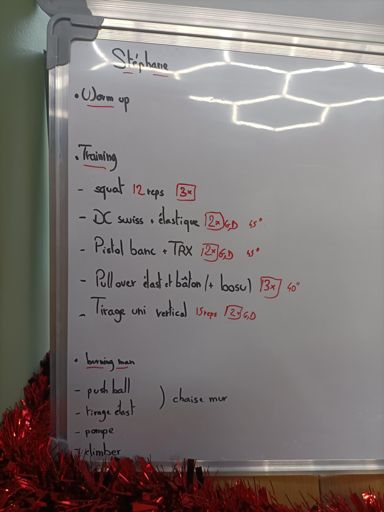 Stéphanie
• Warm up
• Training
- squat 12 reps 3x
- DC swiss + élastique 2x G,D 45"
- Pistol banc + TRX 2x G,D 45"
- Pull over élast et bâton (+ bosu) 3x 40"
- Tirage uni vertical 15 reps 2x G,D
• burning man
- push ball
- tirage élast ) chaise mur
- pompe
- climber